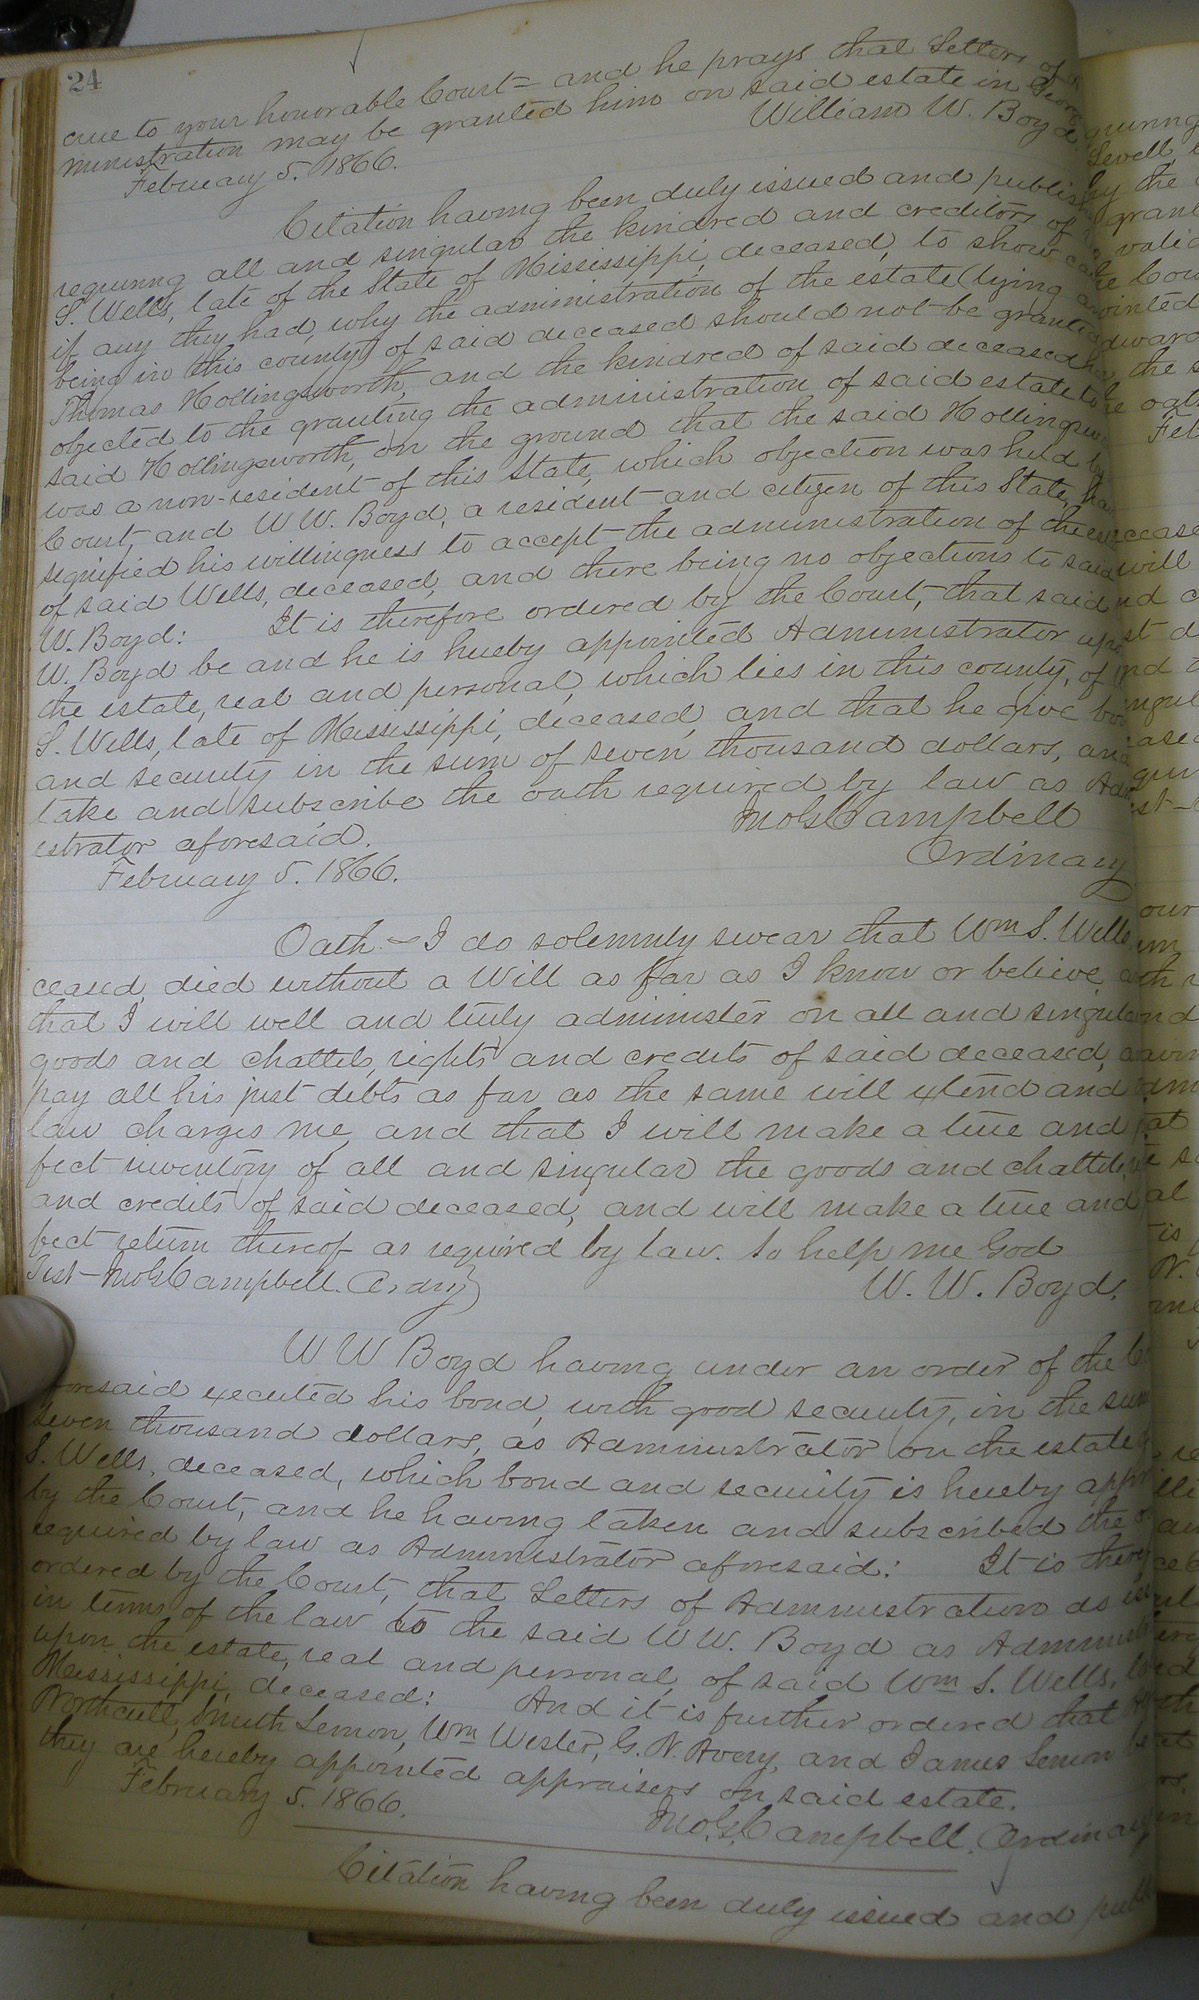 24
crue to your honorable Court – and he prays that Letters of
ministration may be granted him on said estate in
February 5. 1866. William W. Boyd
Citation having been duly issued and publis
requiring all and singular the kindred and creditors of
S. Wells, late of the State of Mississippi, deceased, to show
if any they had, why the administration of the estate (lying
being in this county) of said deceased should not be granted
Thomas Hollingsworth, and the kindred of said deceased
objected to the granting the administration of said estate to
said Hollingsworth, on the ground that the said Hollingsw
was a non-resident of this State, which objection was held
Court, and W W. Boyd, a resident and citizen of this State,
signified his willingness to accept the administration of the
of said Wells, deceased, and there being no objections to said
W. Boyd: It is therefore ordered by the Court, that said
W. Boyd be and he is hereby appointed Administrator
the estate, real and personal, which lies in this county, of
S. Wells, late of Mississippi, deceased, and that he give
and security in the sum of seven thousand dollars, and
take and subscribe the oath required by law as
istrator aforesaid. Jno G. Campbell
February 5. 1866. Ordinary
Oath – I do solemnly swear that Wm S. Wells
ceased, died without a Will as far as I know or believe,
that I will well and truly administer on all and singul
goods and chattels, rights and credits of said deceased,
pay all his just debts as far as the same will extend and
law charges me, and that I will make a true and
fect inventory of all and singular the goods and chattels,
and credits of said deceased, and will make a true and
fect return thereof as required by law. So help me God
Test – Jno G. Campbell. Ordry W. W. Boyd.
W W Boyd having under an order of the
aforesaid executed his bond, with good security, in the sum
seven thousand dollars, as Administrator on the estate
S. Wells, deceased, which bond and security is hereby appr
by the Court, and he having taken and subscribed the
required by law as Administrator aforesaid: It is
ordered by the Court, that Letters of Administration do
in terms of the law to the said W W. Boyd as
upon the estate, real and personal, of said Wm S. Wells,
Mississippi, deceased: And it is further ordered that
Northcutt, Smith Lemon, Wm Wester, G. N. Avery, and James Lemon
they are hereby appointed appraisers on said estate.
February 5. 1866. Jno. G. Campbell. Ordinary
Citation having been duly issued and